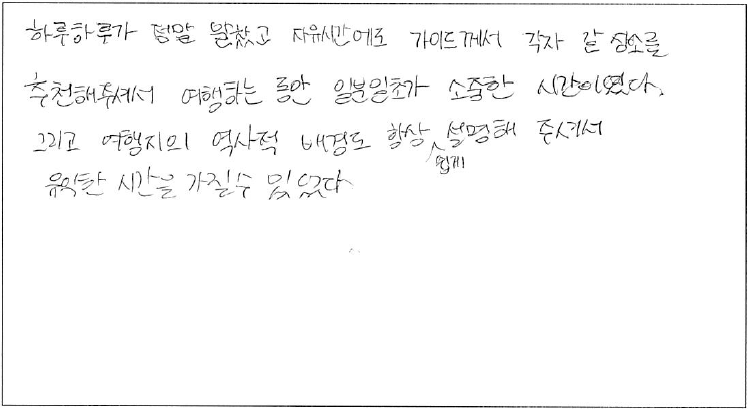 하루하루가 정말 알찼고 자유시간에도 가이드께서 각자 갈 장소를
추천해주셔서 여행하는 동안 일분일초가 소중한 시간이였다.
그리고 여행지의 역사적 배경도 항상 쉽게 설명해 주셔서
유익한 시간을 가질수 있었다